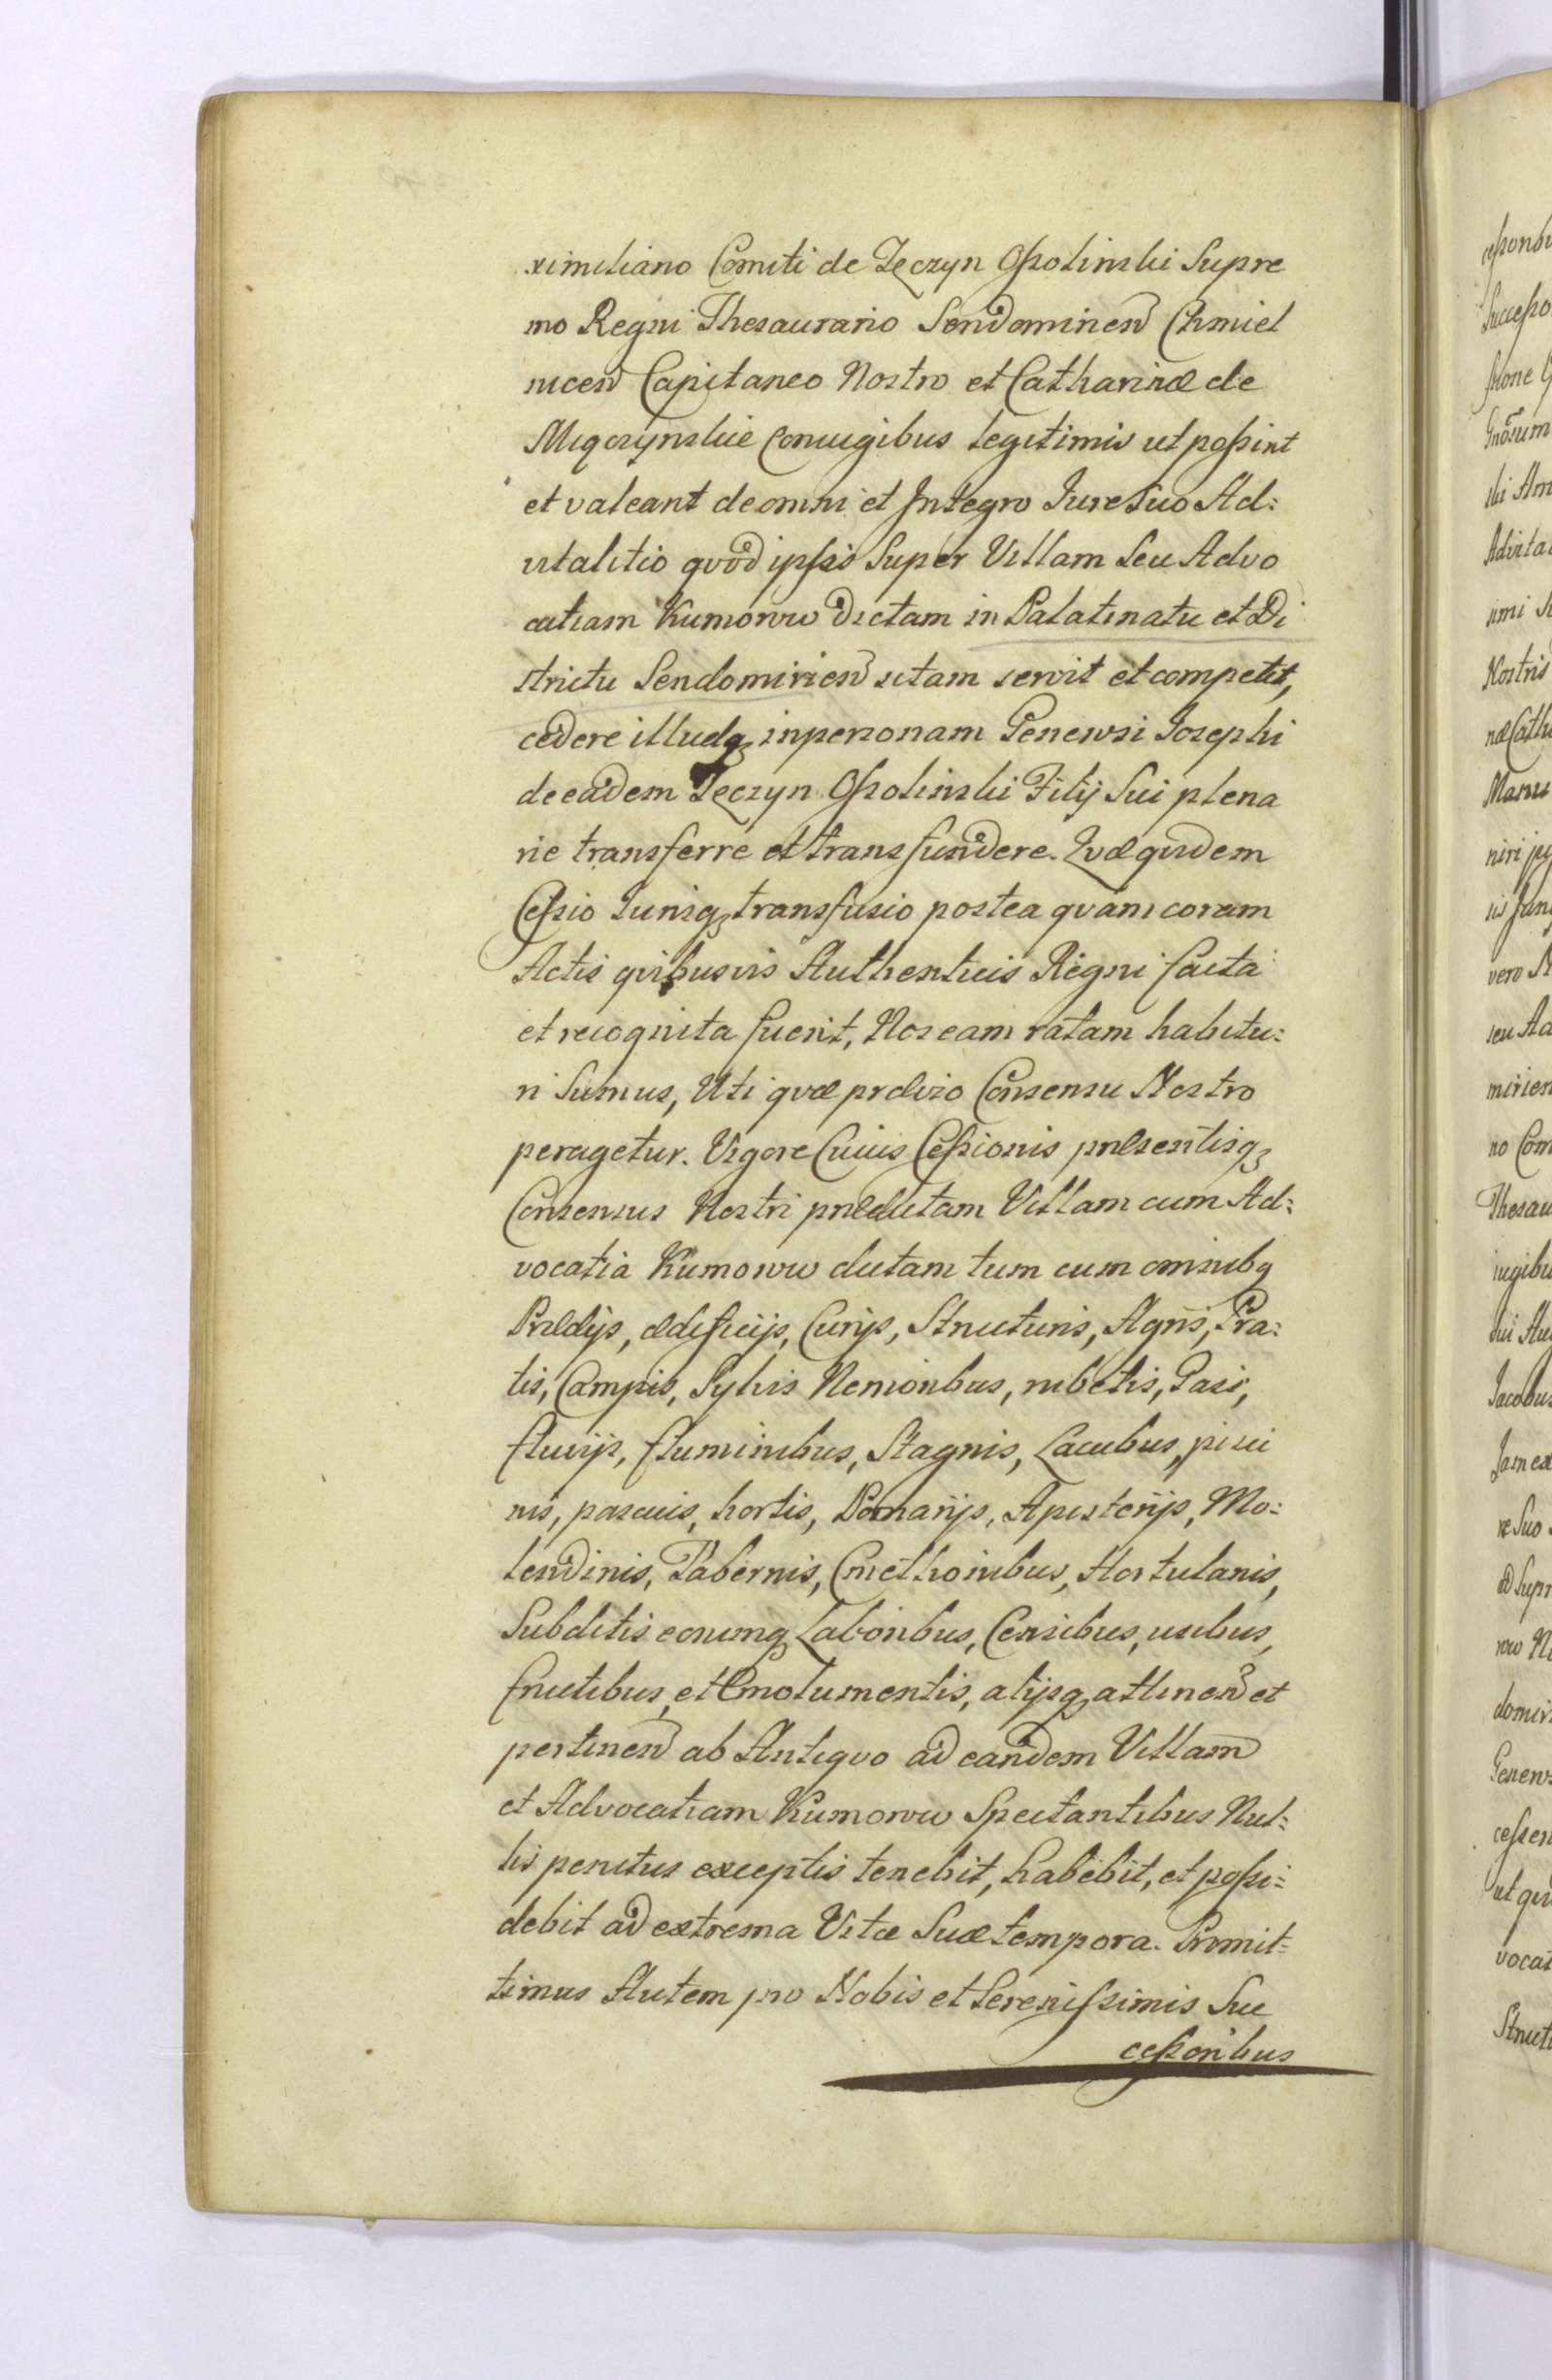 ximiliano Comiti de Tęczyn Ossolinski Supre
mo Regni Thesaurario Sendomirien Chmiel
nicen Capitaneo Nostro et Catharinæ de
Miączynskie Coniugibus legitimis ut possint
et valeant de omni et Integro Iure Suo Ad:
vitalitio qvod ipsis Super Villam Seu Advo
catiam Kumorow Dictam in Palatinatu et Di
strictu Sendomirien sitam servit et competit,
cedere illudq inpersonam Generosi Iosephi
de eadem Tęczyn Ossolinski Filij Sui plena
rie transferre et transfundere. Qvæ qvidem
Cessio Iurisq transfusio postea qvam coram
Actis qvibusvis Authenticis Regni facta
et recognita fuerit, Nos eam ratam habitu:
ri Sumus, Uti qvæ prævio Consensu Nostro
peragetur. Vigore Cuius Cessionis præsentisq
Consensus Nostri prædictam Villam cum Ad:
vocatia Kumorow dictam tum cum omnibq
Prædijs, ædificijs, Curijs, Structuris, Agris, Pra:
tis, Campis, Sylvis Nemoribus, rubetis,
fluvijs, fluminibus, Stagnis, Lacubus, pisci
nis, pascuis, hortis, Pomarijs, Apisterijs, Mo:
lendinis, Tabernis, Cmethonibus, Hortulanis,
Subditis eorumq Laboribus, Censibus, usibus,
fructibus, et Emolumentis, alijsq attinen et
pertinen ab Antiqvo ad eandem Villam
et Advocatiam Kumorow Spectantibus Nul:
lis penitus exceptis tenebit, habebit, et possi:
debit ad extrema Vitæ Suæ tempora. Promit:
timus Autem pro Nobis et Serenissimis Suc
cessoribus